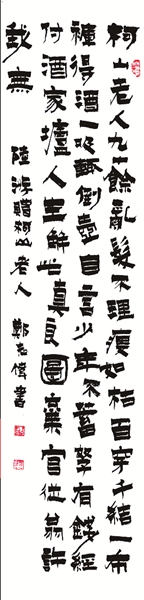 柯山老人九十餘亂髮不理瘦如枯百穿千結一布
襦得酒一吸輒倒壺自言少年不蓄孥有錢經
付酒家壚人生解此真良圖棄官從翁許
我無
陸游贈柯山老人 鄭志偉書